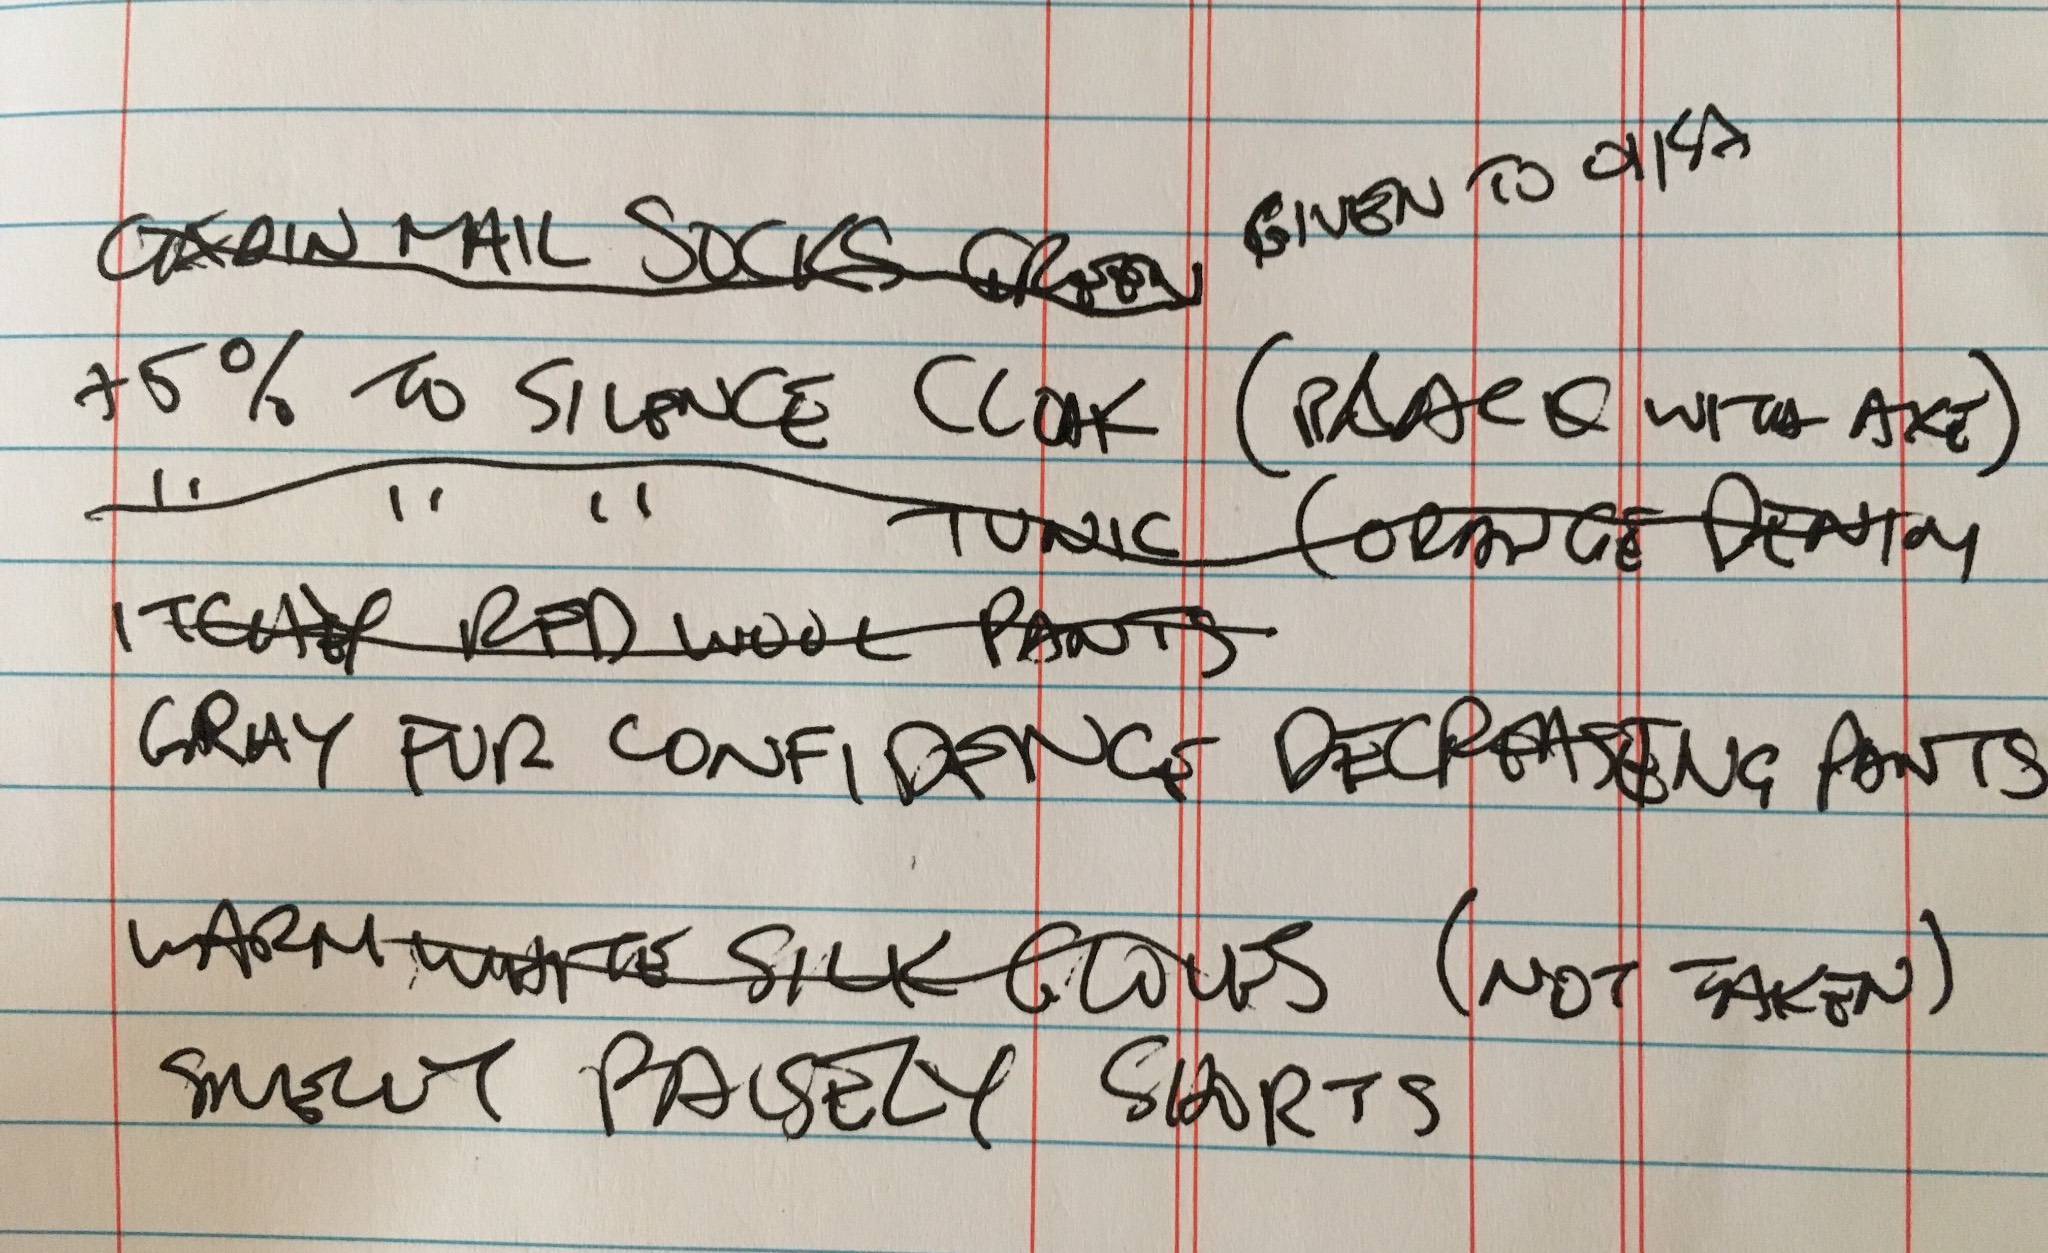 CHAIN MAIL SOCKS GREEN GIVEN TO
+5% TO SILENCE CLOAK (PLACE WITH AXE)
" " " TUNIC (ORANGE DENIM
ITCHY RED WOOL PANTS
GRAY FUR CONFIDENCE DECREASING PANTS
WARM WHITE SILK GLOVES (NOT TAKEN)
SMELLY PAISELY SHORTS